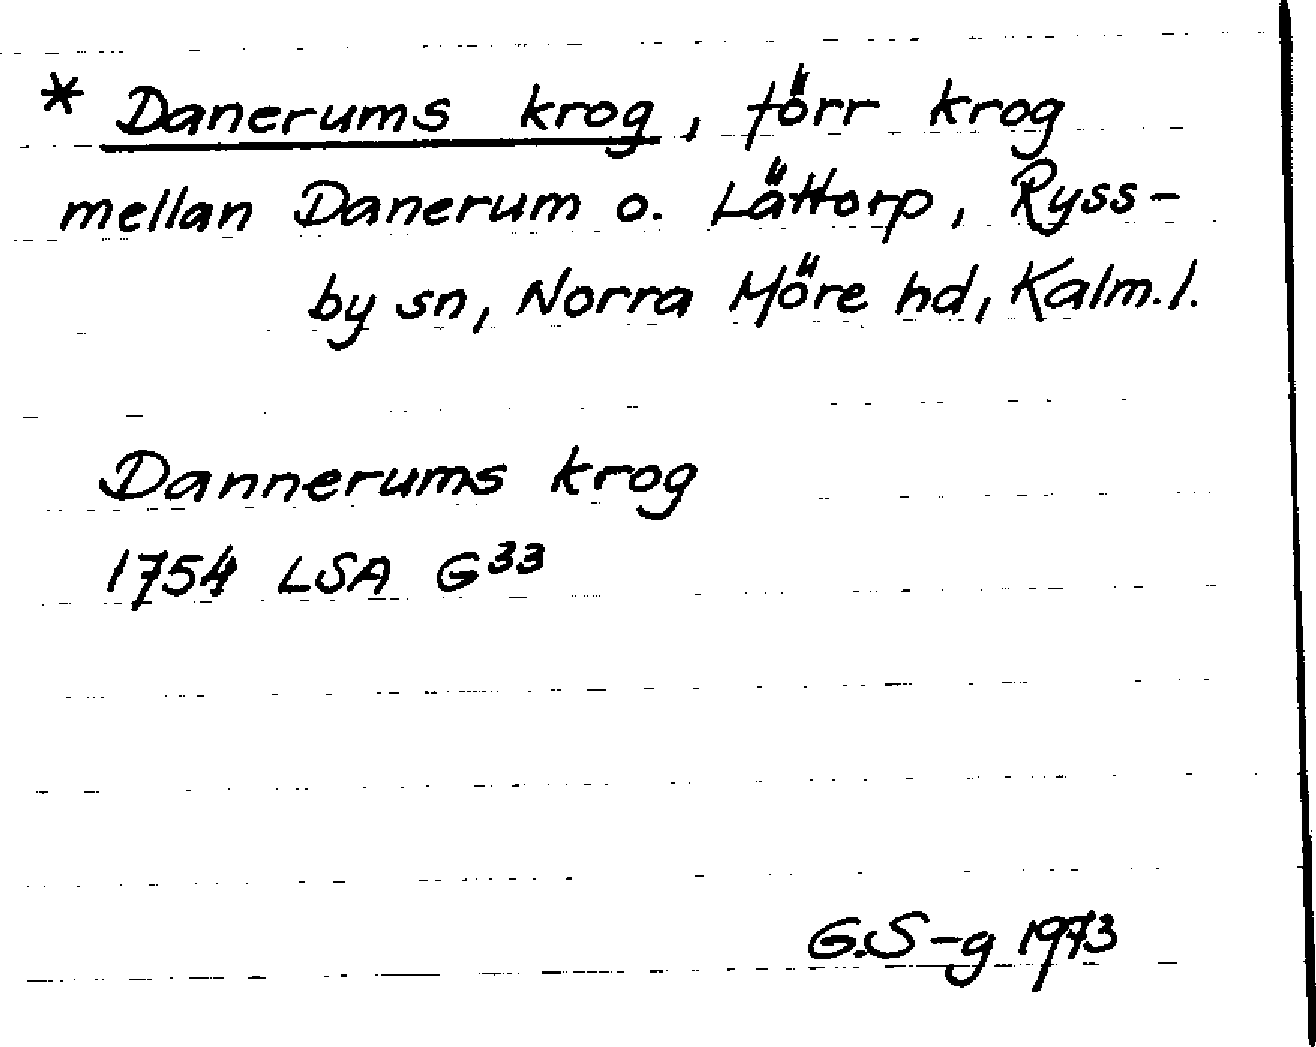 * Danerums krog, förr krog
mellan Danerum o. Lättorp, Ryss-
by sn, Norra Möre hd, Kalm. l.
Dannerums krog
1754 LSA G³³
G.S-g 1973